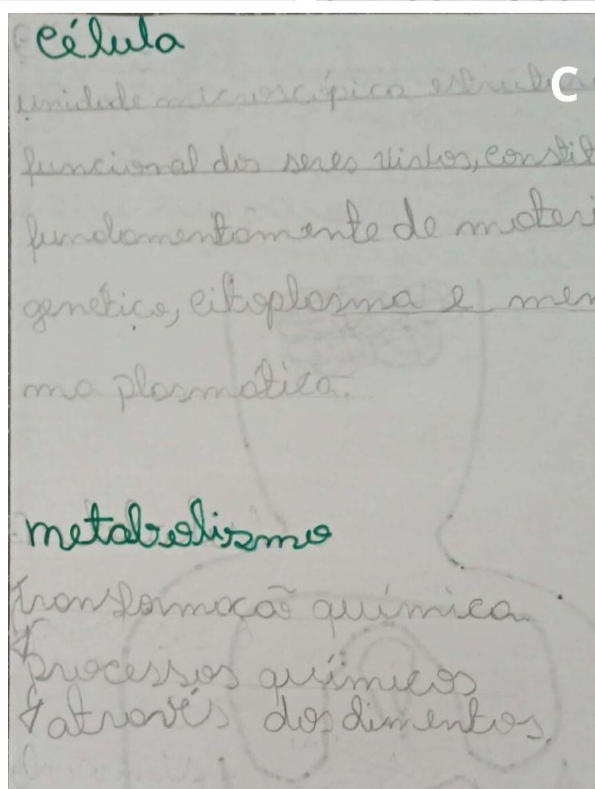 Célula
unidade microscópica estrutura C
funcional dos seres vivos, constit
fundamentamente de materi
genético, citoplasma e mem
ma plasmática.
metabolismo
transformação química
processos químicos
através dos alimentos.